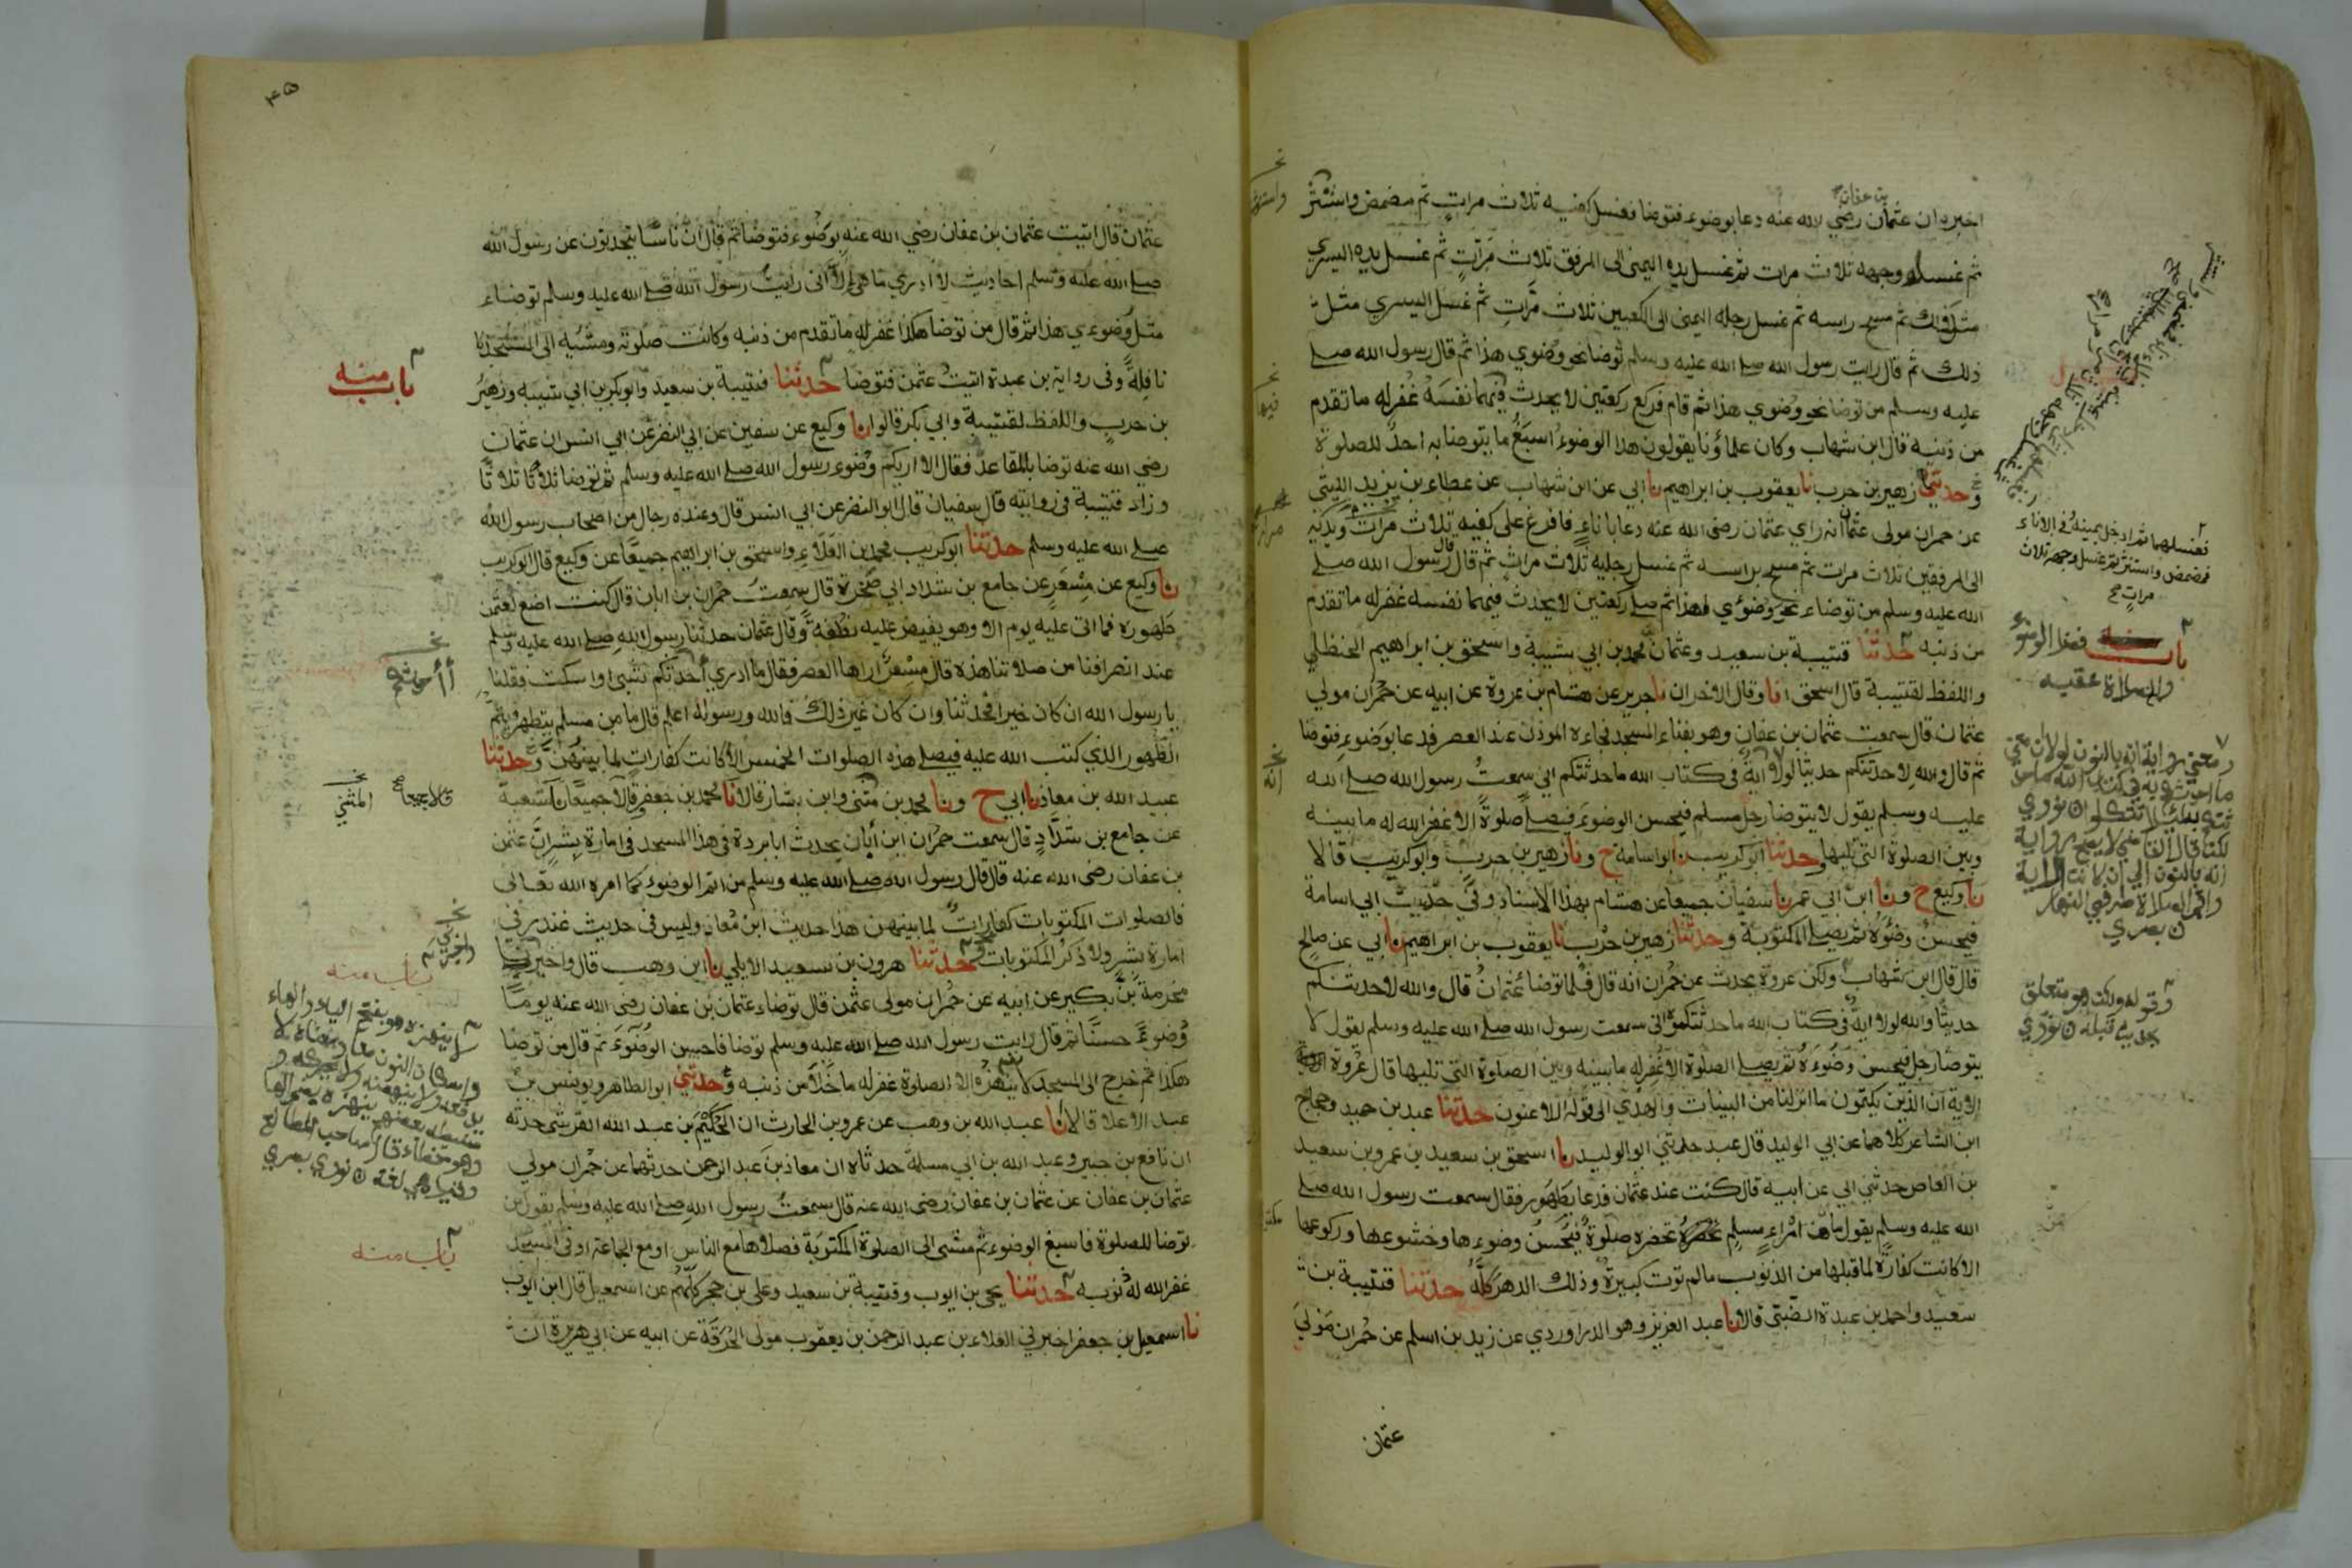 اخبره ان عثمان بن عفان رضي الله عنه دعا بوضوء فتوضا فغسل كفيه ثلاث مرات ثم مضمض واستنثر
ثم غسل وجهه ثلاث مرات ثم غسل يده اليمنى الى المرفق ثلاث مرات ثم غسل يده اليسري
مثل ذلك ثم مسح راسه ثم غسل رجله اليمنى الى الكعبين ثلاث مرات ثم غسل اليسري مثل
ذلك ثم قال رايت رسول الله صلى الله عليه وسلم توضا نحو وضوي هذا ثم قال رسول الله صلى
عليه وسلم من توضا نحو وضوي هذا ثم قام فركع ركعتين لا يحدث فيهما نفسه غفر له ما تقدم
من ذنبه قال ابن شهاب وكان علماؤنا يقولون هذا الوضوء اسبغ ما يتوضا به احد للصلوة
وحدثني زهير بن حرب نا يعقوب بن ابراهيم نا ابي عن ابن شهاب عن عطاء بن يزيد الليثي
عن حمران مولى عثمان انه راي عثمان رضى الله عنه دعا باناء فافرغ على كفيه ثلاث مرات
الى المرفقين ثلاث مرات ثم مسح براسه ثم غسل رجليه ثلاث مرات ثم قال قال رسول الله صلى
الله عليه وسلم من توضاء نحو وضوئي هذا ثم صلى ركعتين لا يحدث فيهما نفسه غفر له ما تقدم
من ذنبه حدثنا قتيبة بن سعيد وعثمان بن محمد بن ابي شيبة واسحق بن ابراهيم الحنظلي
واللفظ لقتيبة قال اسحق انا وقال الاخران نا جرير عن هشام بن عروة عن ابيه عن حمران مولي
عثمان قال سمعت عثمان بن عفان وهو بفناء المسجد فجاءه الموذن عند العصر فدعا بوضوء فتوضا
ثم قال والله لاحدثنكم حديثا لولا اية في كتاب الله ما حدثتكم اني سمعت رسول الله صلى الله
عليه وسلم يقول لا يتوضا رجل مسلم فيحسن الوضوء فيصلي صلوة الا غفر الله له ما بينه
وبين الصلوة التي تليها وحدثنا ابو كريب نا ابو اسامة ح ونا زهير بن حرب وابو كريب قالا
نا وكيع ح ونا ابن ابي عمر نا سفيان جميعا عن هشام بهذا الاسناد وفي حديث ابي اسامة
فيحسن وضوءه ثم يصلي المكتوبة وحدثنا زهير بن حرب نا يعقوب بن ابراهيم نا ابي عن صالح
قال قال ابن شهاب ولكن عروة يحدث عن حمران انه قال فلما توضا عثمان قال والله لاحدثنكم
حديثا والله لولا اية في كتاب الله ما حدثتكموه اني سمعت رسول الله صلى الله عليه وسلم يقول لا
يتوضا رجل فيحسن وضوءه ثم يصلي الصلوة الا غفر له ما بينه وبين الصلوة التي تليها قال عروة
الاية ان الذين يكتمون ما انزلنا من البينات والهدي الى قوله اللاعنون حدثنا عبد بن حميد وحجاج
ابن الشاعر كلاهما عن ابي الوليد قال عبد حدثني ابو الوليد نا اسحق بن سعيد بن عمرو بن سعيد
بن العاص حدثني ابي عن ابيه قال كنت عند عثمان فدعا بطهور فقال سمعت رسول الله صلى
الله عليه وسلم يقول ما من امرء مسلم تحضره صلوة فيحسن وضوءها وخشوعها وركوعها
الا كانت كفارة لما قبلها من الذنوب ما لم توت كبيرة وذلك الدهر كله حدثنا قتيبة بن
سعيد واحمد بن عبدة الضبى قالا نا عبد العزيز وهو الدراوردي عن زيد بن اسلم عن حمران مولي
عثمان
فغسلهما ثم ادخل يمينه في الاناء
فمضمض واستنثر ثم غسل وجهه ثلاث
مرات صح
باب فضل الوضوء
والصلاة عقبه
وقوله ولكن هو متعلق
بحديث قبله ن نووي
٤٥
عثمان قال اتيت عثمان بن عفان رضي الله عنه بوضوء فتوضا ثم قال ان ناسا يتحدثون عن رسول الله
صلى الله عليه وسلم احاديث لا ادري ما هي الا اني رايت رسول الله صلى الله عليه وسلم توضاء
مثل وضوءي هذا ثم قال من توضا هكذا غفر له ما تقدم من ذنبه وكانت صلوته ومشيه الى المسجد
نافلة وفى رواية بن عبدة اتيت عثمن فتوضا حدثنا قتيبة بن سعيد وابو بكر بن ابي شيبه وزهير
بن حرب واللفظ لقتيبة وابي بكر قالوا نا وكيع عن سفين عن ابي النضر عن ابي انس ان عثمان
رضي الله عنه توضا بالمقاعد فقال الا اريكم وضوء رسول الله صلى الله عليه وسلم ثم توضا ثلاثا ثلاثا
وزاد قتيبة في روايته قال سفيان قال ابو النضر عن ابي انس قال وعنده رجال من اصحاب رسول الله
صلى الله عليه وسلم حدثنا ابو كريب محمد بن العلاء واسحق بن ابراهيم جميعا عن وكيع قال ابو كريب
نا وكيع عن مسعر عن جامع بن شداد ابي صخرة قال سمعت حمران بن ابان قال كنت اضع لعثمن
طهوره فما اتى عليه يوم الا وهو يفيض عليه نطفة وقال عثمان حدثنا رسول الله صلى الله عليه وسلم
عند انصرافنا من صلاتنا هذه قال مسعر اراها العصر فقال ما ادري أحدثكم بشىء او اسكت فقلنا
يا رسول الله ان كان خيرا فحدثنا وان كان غير ذلك فالله ورسوله اعلم قال ما من مسلم يتطهر فيتم
الطهور الذي كتب الله عليه فيصلي هذه الصلوات الخمس الا كانت كفارات لما بينهن وحدثنا
عبيد الله بن معاذ نا ابي ح ونا محمد بن مثنى وابن بشار قالا نا محمد بن جعفر قالا جميعا نا شعبة
عن جامع بن شداد قال سمعت حمران ابن أبان يحدث ابا بردة في هذا المسجد فى امارة بشر ان عثمن
بن عفان رضي الله عنه قال قال رسول الله صلى الله عليه وسلم من اتم الوضوء كما امره الله تعالى
فالصلوات المكتوبات كفارات لما بينهن هذا حديث ابن معاذ وليس فى حديث غندر في
امارة بشر ولا ذكر المكتوبات حدثنا هرون بن سعيد الايلي نا ابن وهب قال واخبرنا
مخرمة بن بكير عن ابيه عن حمران مولى عثمن قال توضاء عثمان بن عفان رضي الله عنه يوما
وضوءا حسنا ثم قال رايت رسول الله صلى الله عليه وسلم توضا فاحسن الوضوء ثم قال من توضا
هكذا ثم خرج الى المسجد لا ينهزه الا الصلوة غفر له ما خلا من ذنبه وحدثني ابو الطاهر ويونس بن
عبد الاعلا قالا نا عبد الله بن وهب عن عمرو بن الحارث ان الحكيم بن عبد الله القرشى حدثه
ان نافع بن جبير وعبد الله بن ابي مسلمة حدثاه ان معاذ بن عبد الرحمن حدثهما عن حمران مولي
عثمان بن عفان عن عثمان بن عفان رضى الله عنه قال سمعت رسول الله صلى الله عليه وسلم يقول من
توضا للصلوة فاسبغ الوضوء ثم مشى الى الصلوة المكتوبة فصلاها مع الناس او مع الجماعة او فى المسجد
غفر الله له ذنوبه حدثنا يحيى بن ايوب وقتيبة بن سعيد وعلى بن حجر كلهم عن اسمعيل قال ابن ايوب
نا اسمعيل بن جعفر اخبرني العلاء بن عبد الرحمن بن يعقوب مولى الحرقة عن ابيه عن ابي هريرة ان
باب منه
أأحدثكم
المثنى
باب منه
باب منه